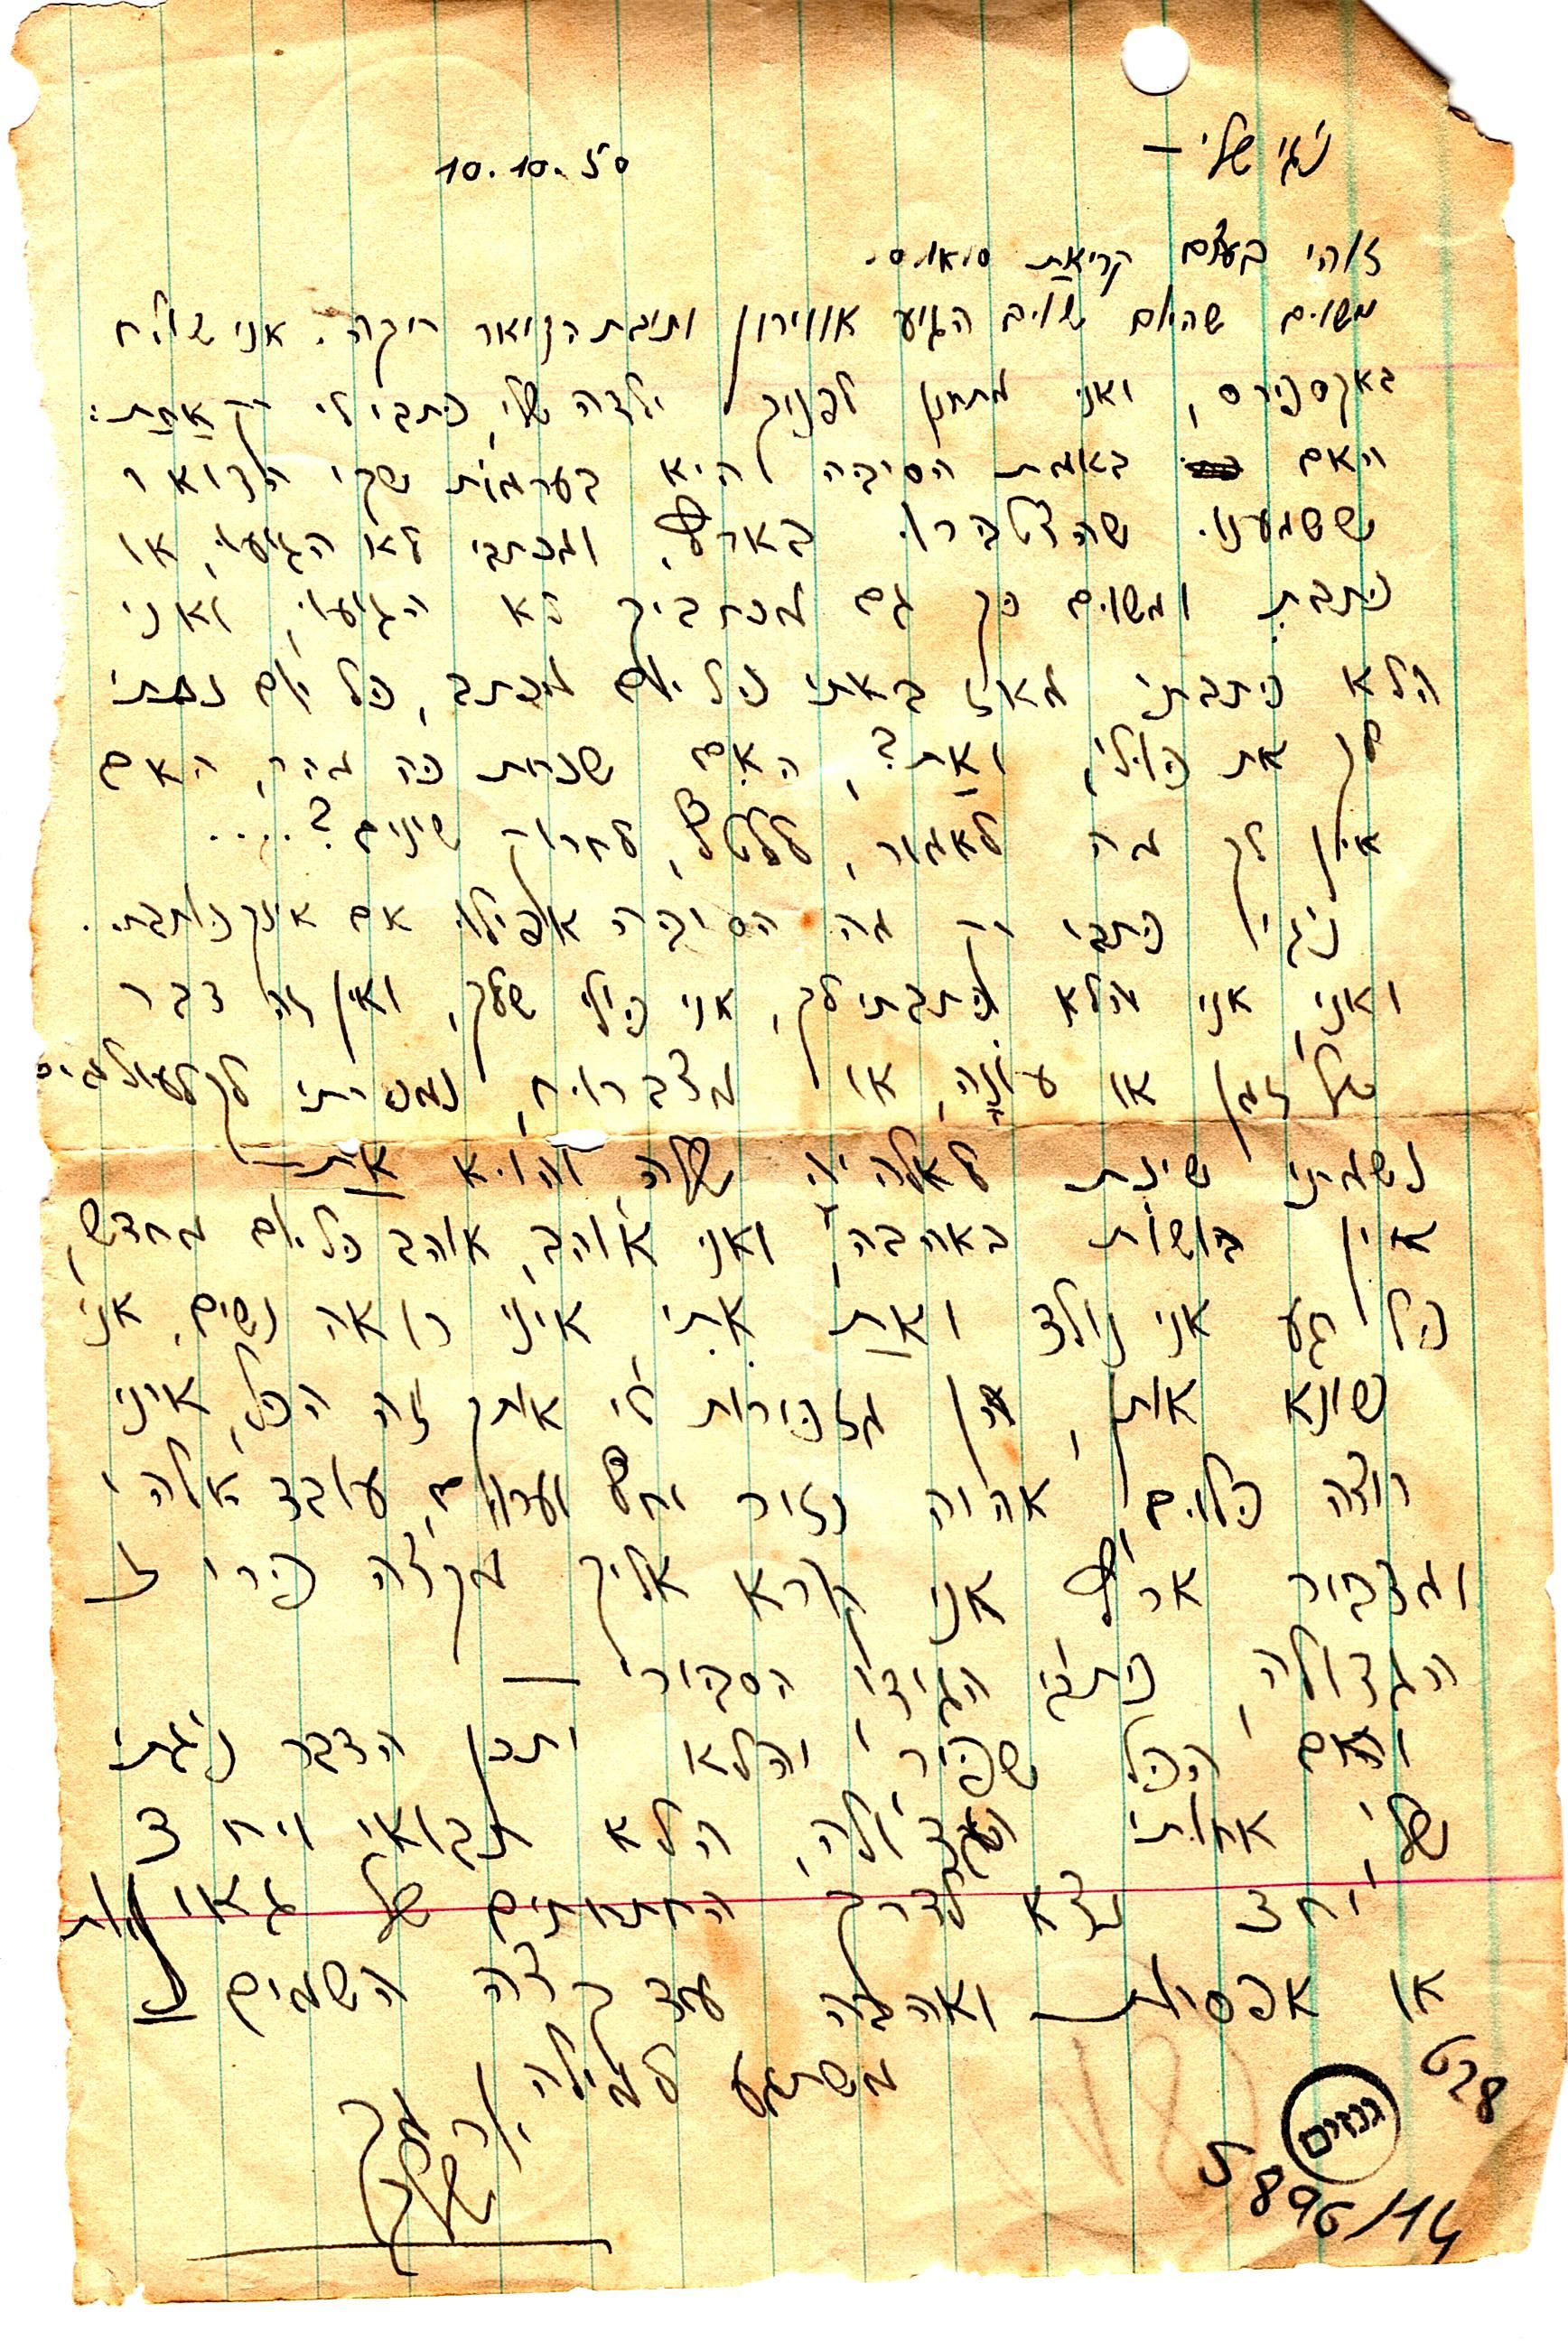 נגוי שלי — 10.10.50
זוהי בעצם קריאת ס.או.ס.
משום שהיום שוב הגיע אווירון ותיבת הדואר ריקה. אני שולח
באקספרס, ואני מתחנן לפניך ילדה שלי, כתבי לי רק אחת:
האם באמת הסיבה היא בערמות שקי הדואר
ששמענו שהצטברו בארץ, ומכתבי לא הגיעו, או
כתבת ומשום כך גם מכתביך לא הגיעו, ואני
הלא כתבתי מאז באתי כל יום מכתב, כל יום נתתי
לך את כולי, ואת?, האם שכחת כה מהר, האם
אין לך מה לאמור, לצלצל, לחרוק שינים?....
כתבי רק מה הסיבה אפילו אם אינך כותבת.
ואני, אני הלא כתבתי לך, אני כולי שלך, ואין זה דבר
של זמן או עונה, או מצב רוח, נמכרתי לך לעולמים
נשמתי שיכת לאלהיה שלה, והוא את—
אין בושות באהבה, ואני אוהב, אוהב כל יום מחדש,
כל רגע אני נולד ואת אתי, איני רואה נשים, אני
שונא אותן, הן מזכירות לי אותך וזה הכל, איני
רוצה כלום, אהיה נזיר יחף וערום, עובד אלהי
ומדבר ארץ אני קורא אליך מקצה כרך זו
הגדולה,
ואם הכל שפיר והלא יתכן הדבר
שלי אחותי הגדולה, הלא תבואי ויחד
יחד נצא לדרך החתחתים של גאוניות
או אפסות ואהבה עד קצה השמים
משתגע למילה
גנזים
628
5896/14